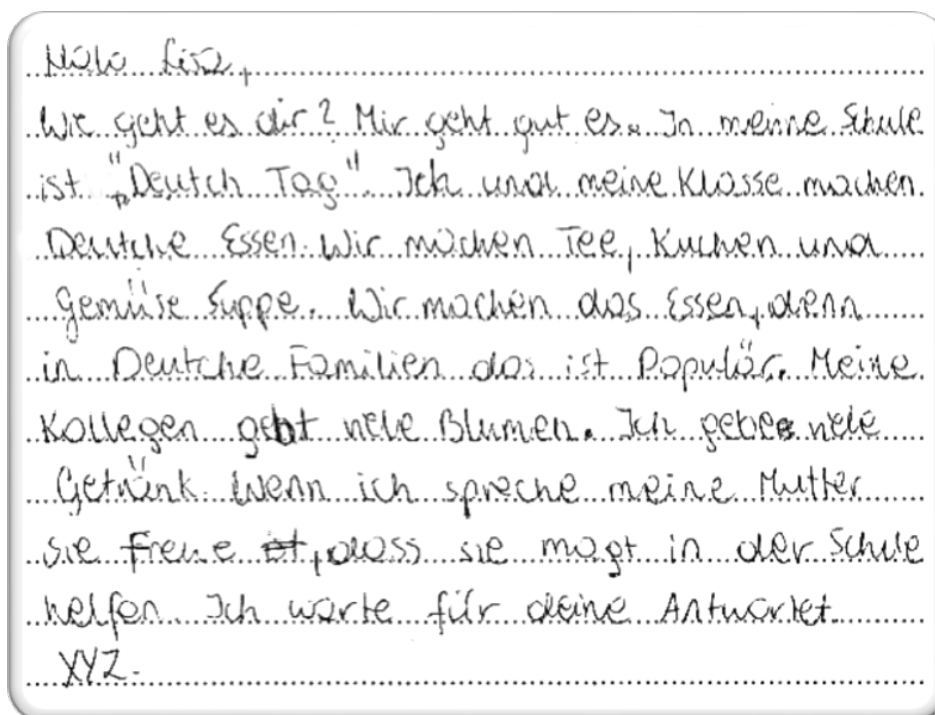 Halo Lisa,
Wie geht es dir? Mir geht gut es. In meine Schule
ist „Deutch Tag". Ich und meine Klasse machen
Deutche Essen. Wir machen Tee, Kuchen und
Gemüse Suppe. Wir machen das Essen, denn
in Deutche Familien das ist Populär. Meine
Kollegen gebt viele Blumen. Ich gebe viele
Getränk. Wenn ich spreche meine Mutter
sie freue, dass sie magt in der Schule
helfen. Ich warte für deine Antwortet.
XYZ.